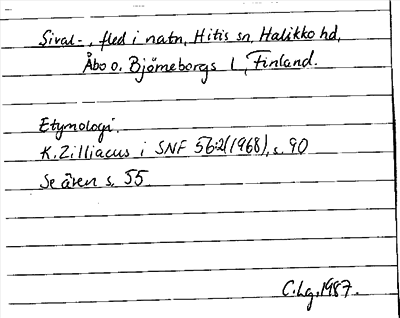 Sival-, fled i natn, Hitis sn, Halikko hd,
Åbo o. Björneborgs l, Finland.
Etymologi.
K. Zilliacus i SNF 56:2(1968), s. 90
Se även s. 55
C.Lg. 1987.